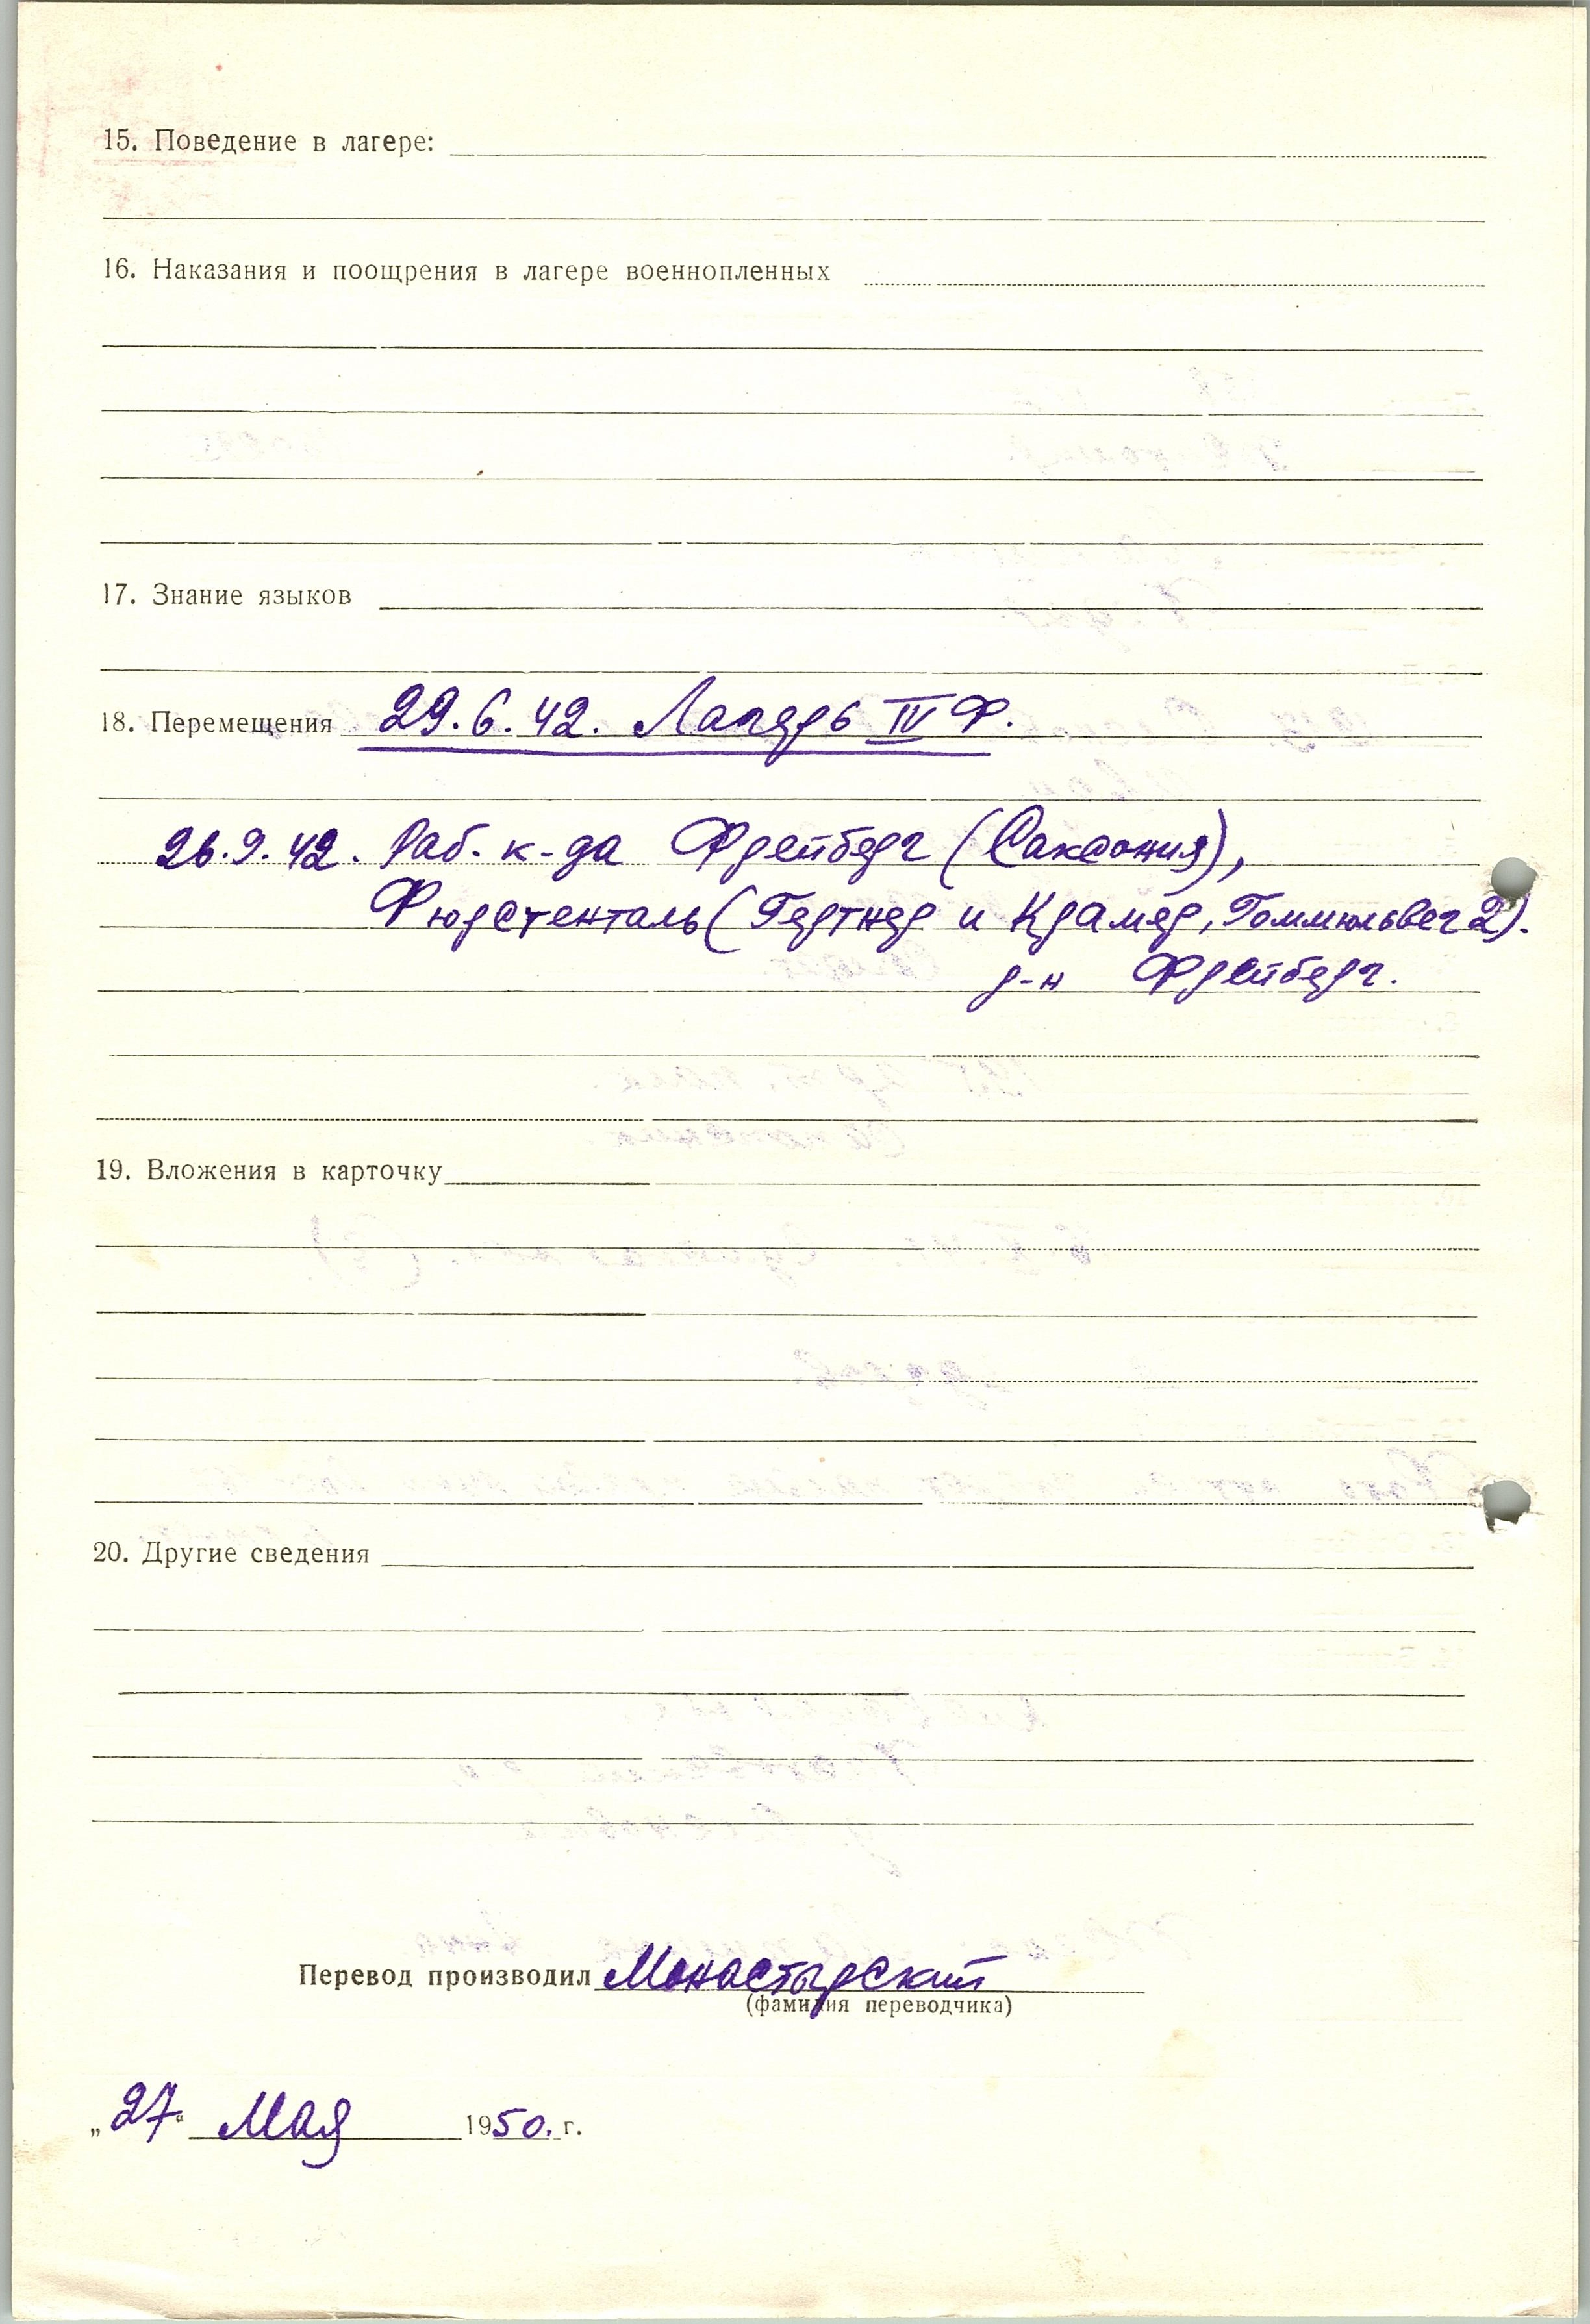 15. Поведение в лагере:
16. Наказания и поощрения в лагере военнопленных
17. Знание языков
18. Перемещения 29.6.42. Лагерь IV Ф.
26.9.42. Раб. к-да Фрейберг (Саксония),
Фюрстенталь (Гертнер и Крамер, Гоммюльвег 2).
р-н Фрейберг.
19. Вложения в карточку
20. Другие сведения
Перевод производил Монастырский
(фамилия переводчика)
„27“ Мая 1950. г.